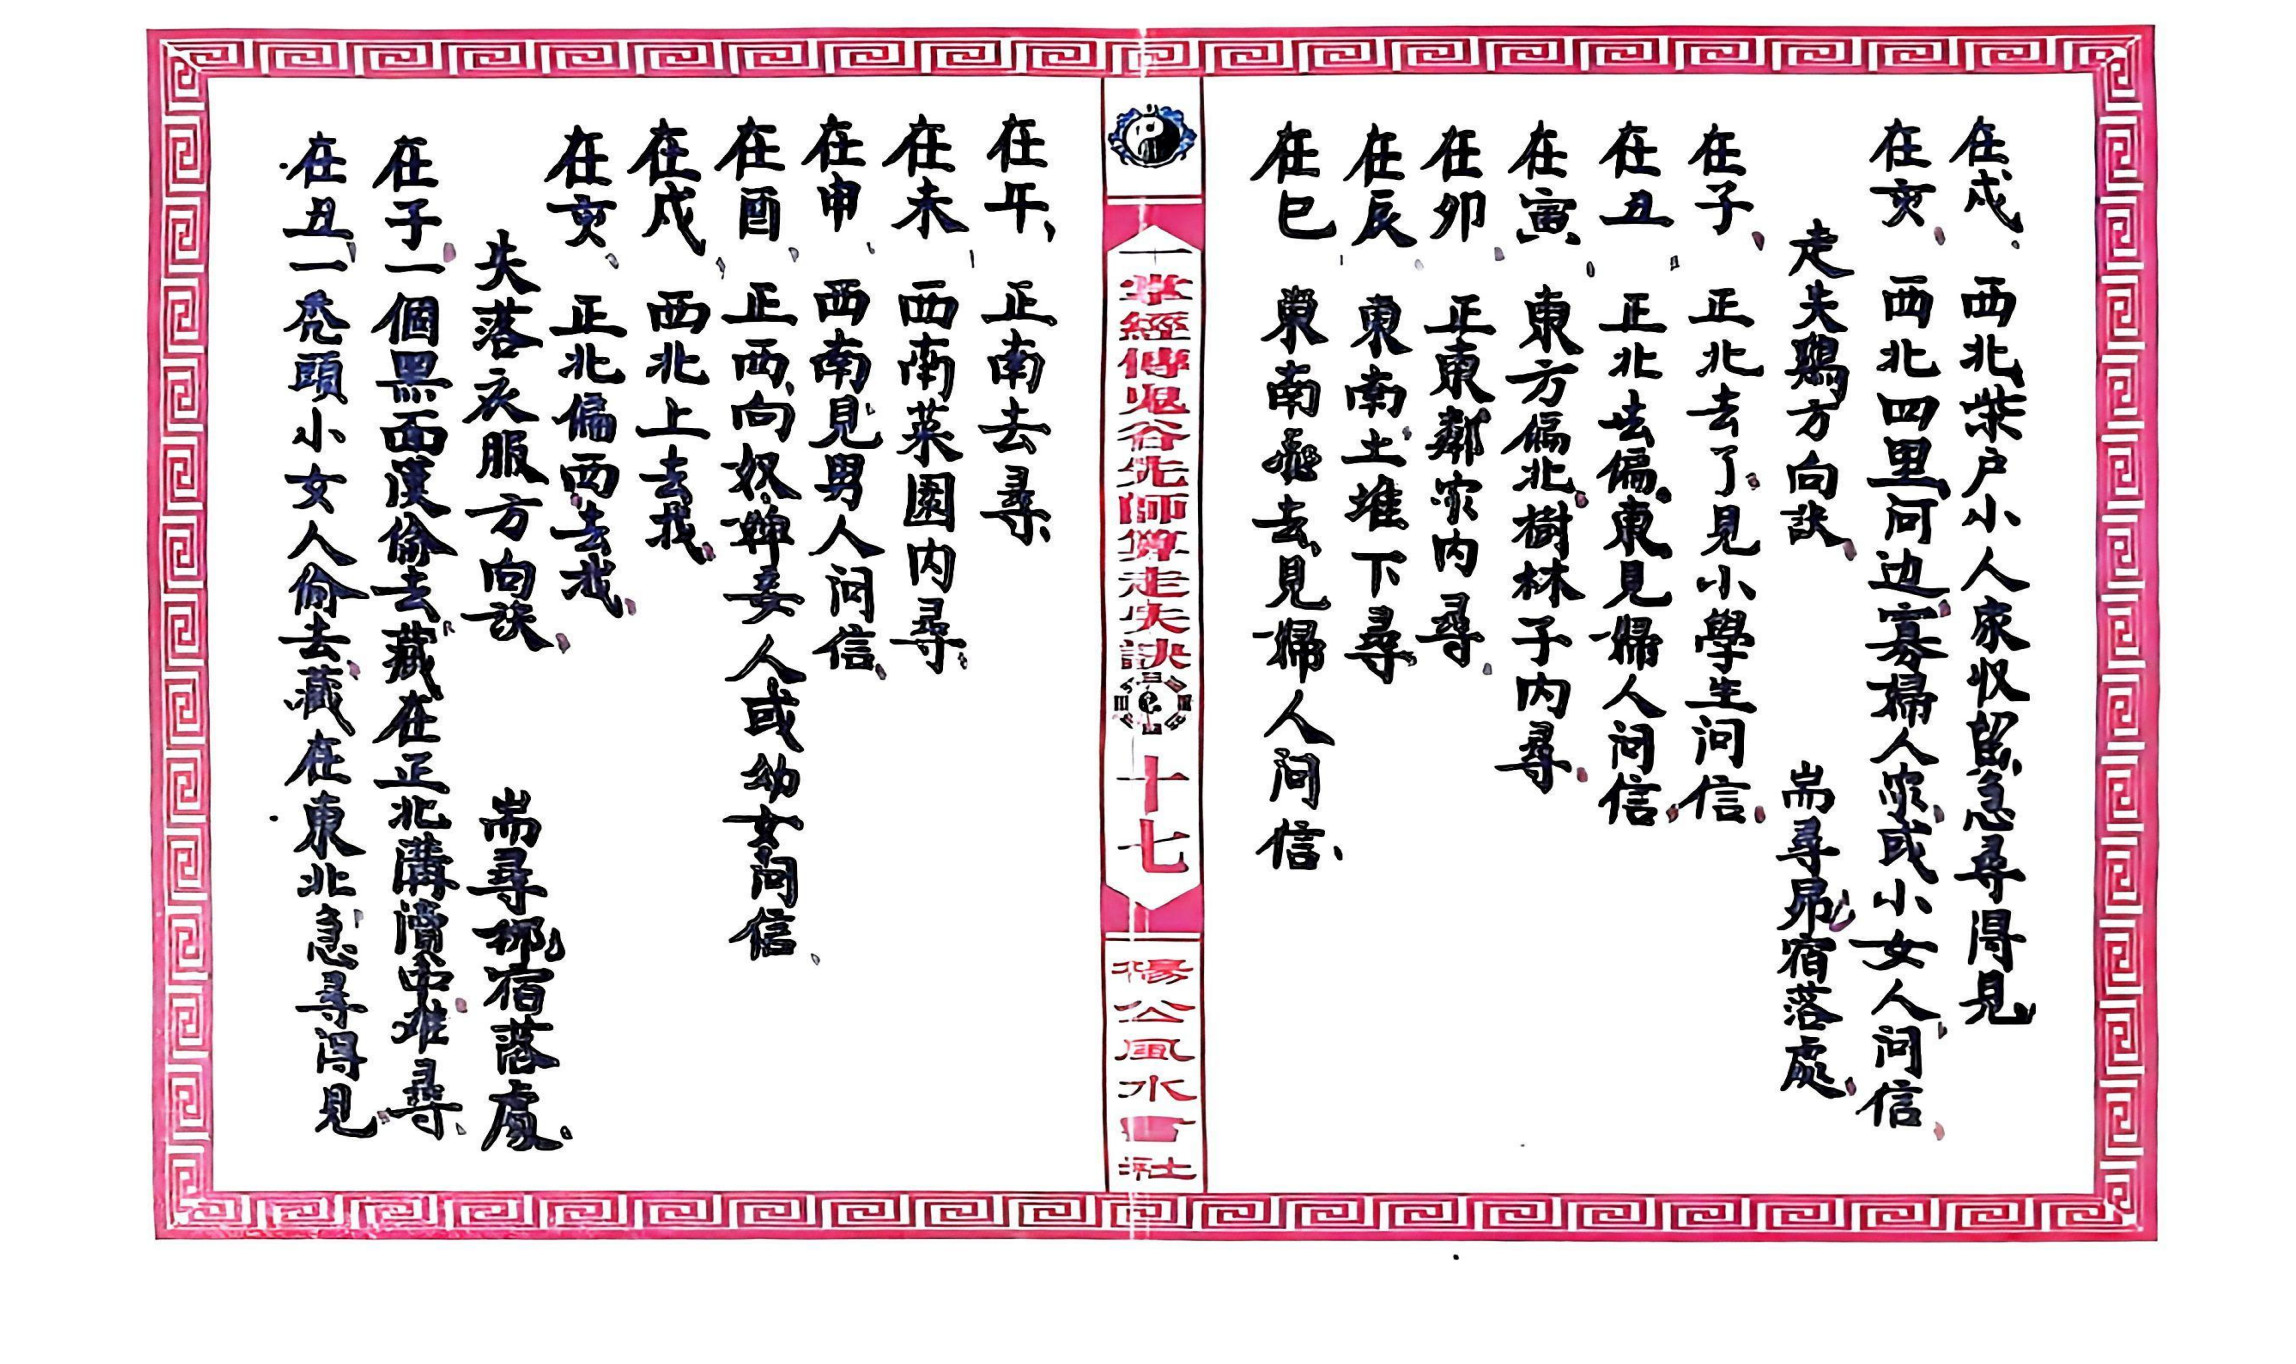 在戌、西北柴户小人家収留急尋得見
在亥、西北四里问边寡婦人家或小女人问信、
走失鷄方向訣、 耑尋昴宿落處、
在子、正北去了見小學生问信、
在丑、正北去偏東見婦人问信、
在寅、東方偏北樹林子内尋、
在卯、正東鄰家内尋、
在辰、東南土堆下尋
在巳、東南飛去見婦人问信、
一掌經傳鬼谷先師算走失訣
十七
楊公風水書社
在午、正南去尋、
在未、西南菜園内尋、
在申、西南見男人问信、
在酉、正西向奴婢妾人或幼女问信、
在戌、西北上去找、
在亥、正北偏西去找、
失落衣服方向訣、 耑尋柳宿落處、
在子、一個黑面漢偷去藏在正北溝瀆中难尋、
在丑、一秃頭小女人偷去藏在東北急尋得見